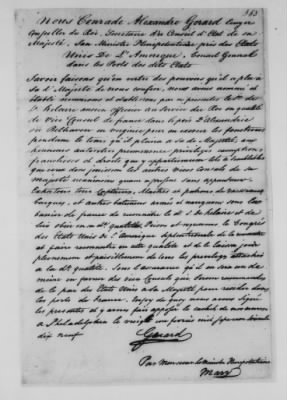 183
Nous Conrade Alexandre Gerard Ecuyer
Conseiller du Roi, Secretaire du Conseil d'Etat de sa
Majesté, Son Ministre Plenipotentiaire près des Etats
Unis De L'Amerique, Consul General
dans les Ports des dits Etats
Savoir faisons qu'en vertu des pouvoirs qu'il a plu à
Sa d. Majesté de nous confier, nous avons nommé et
établi commettons et établissons par ces presentes le S. de
St helaire ancien officier au Service du Roi en qualité
de vice Consul de france dans le port d'Alexandrie
ou Belhaven en virginie pour en exercer les fonctions
pendant le tems qu'il plaira à sa de Majesté, aux
honneurs autorités prééminences privileges exemptions,
franchises et droits que y appartiennent
que ceux dont jouissent les autres vices Consuls de sa
majesté
tous Capitaines, Maîtres et patrons de vaisseaux
barques, et autres batimens armés et navigans sous la
baniere de france de reconnoitre le d. S. de St helaire et de
lui obeir en sa d. qualité. Prions et requerons le Congrès
des Etats Unis de l'Amerique
et faire reconnoitre en cette qualité et de le laisser jouir
pleinement et paisiblement de tous les privileges attachés
à la d. qualité. Sous l'assurance qu'il en sera usé de
même en faveur des vices Consuls qui seront commis
de la part des Etats Unis à sa Majesté pour resider dans
les ports de france. En foy de quoy nous avons signé
les presentes et y avons fait apposer le cachet de nos armes
à Philadelphie le vingt
dix neuf
Gerard
Par Monsieur le Ministre Plenipotentiaire